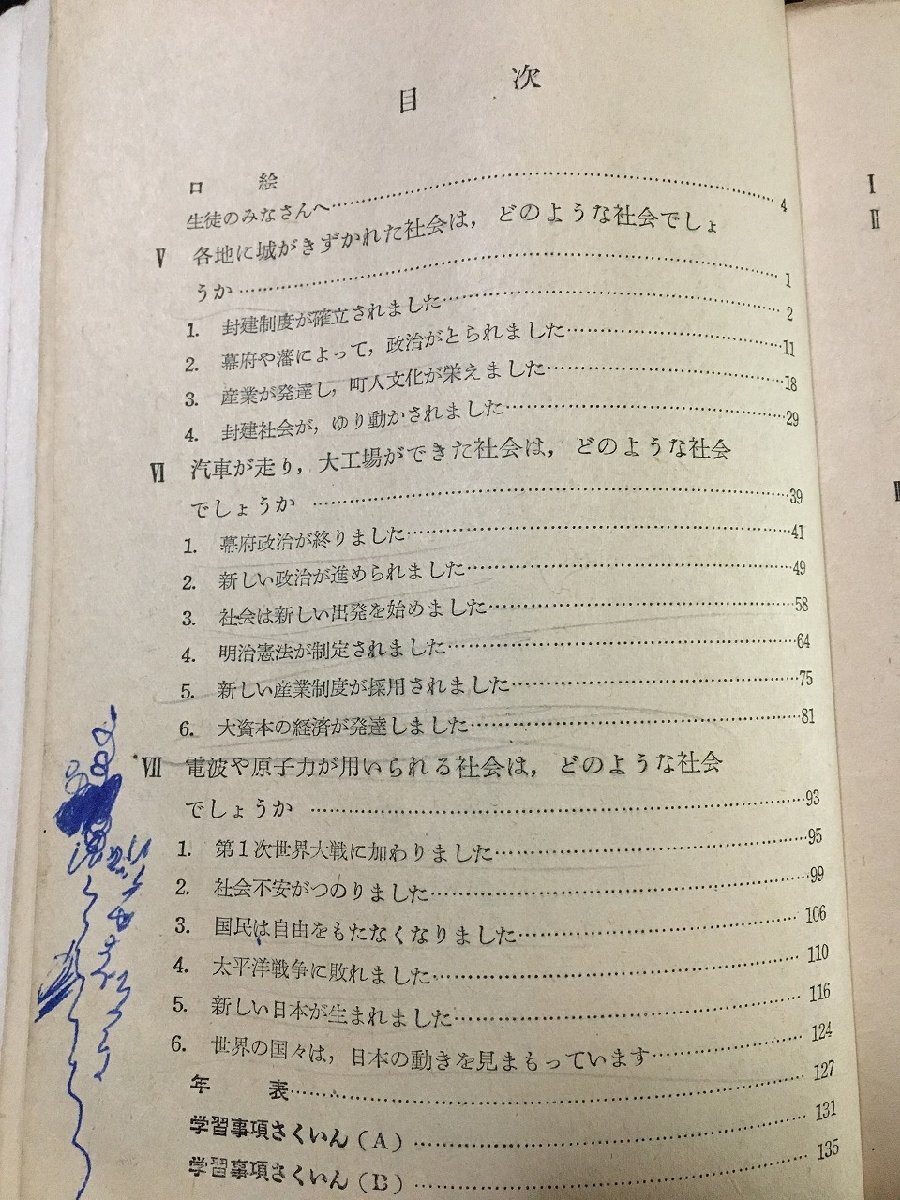 目次
口絵
生徒のみなさんへ……4
Ⅴ 各地に城がきずかれた社会は，どのような社会でしょ
うか……1
1. 封建制度が確立されました……2
2. 幕府や藩によって，政治がとられました……11
3. 産業が発達し，町人文化が栄えました……18
4. 封建社会が，ゆり動かされました……29
Ⅵ 汽車が走り，大工場ができた社会は，どのような社会
でしょうか……39
1. 幕府政治が終りました……41
2. 新しい政治が進められました……49
3. 社会は新しい出発を始めました……58
4. 明治憲法が制定されました……64
5. 新しい産業制度が採用されました……75
6. 大資本の経済が発達しました……81
Ⅶ 電波や原子力が用いられる社会は，どのような社会
でしょうか……93
1. 第1次世界大戦に加わりました……95
2. 社会不安がつのりました……99
3. 国民は自由をもたなくなりました……106
4. 太平洋戦争に敗れました……110
5. 新しい日本が生まれました……116
6. 世界の国々は，日本の動きを見まもっています……124
年表……127
学習事項さくいん（A）……131
学習事項さくいん（B）……135
Ⅰ
Ⅱ